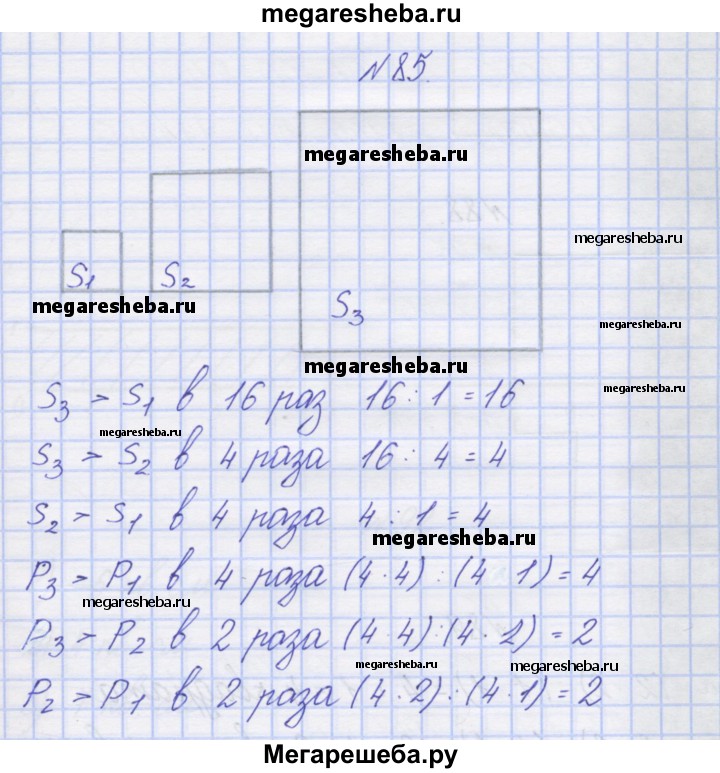 megaresheba.ru
№85.
megaresheba.ru
megaresheba.ru
S1 S2
megaresheba.ru
S3
megaresheba.ru
megaresheba.ru
S3 > S1 в 16 раз 16 : 1 = 16
megaresheba.ru
megaresheba.ru
S3 > S2 в 4 раза 16 : 4 = 4
S2 > S1 в 4 раза 4 : 1 = 4
megaresheba.ru
P3 > P1 в 4 раза (4·4) : (4 1) = 4
megaresheba.ru
P3 > P2 в 2 раза (4 4) : (4 · 2) = 2
megaresheba.ru
megaresheba.ru
P2 > P1 в 2 раза (4·2) : (4·1) = 2
Мегарешеба.ру